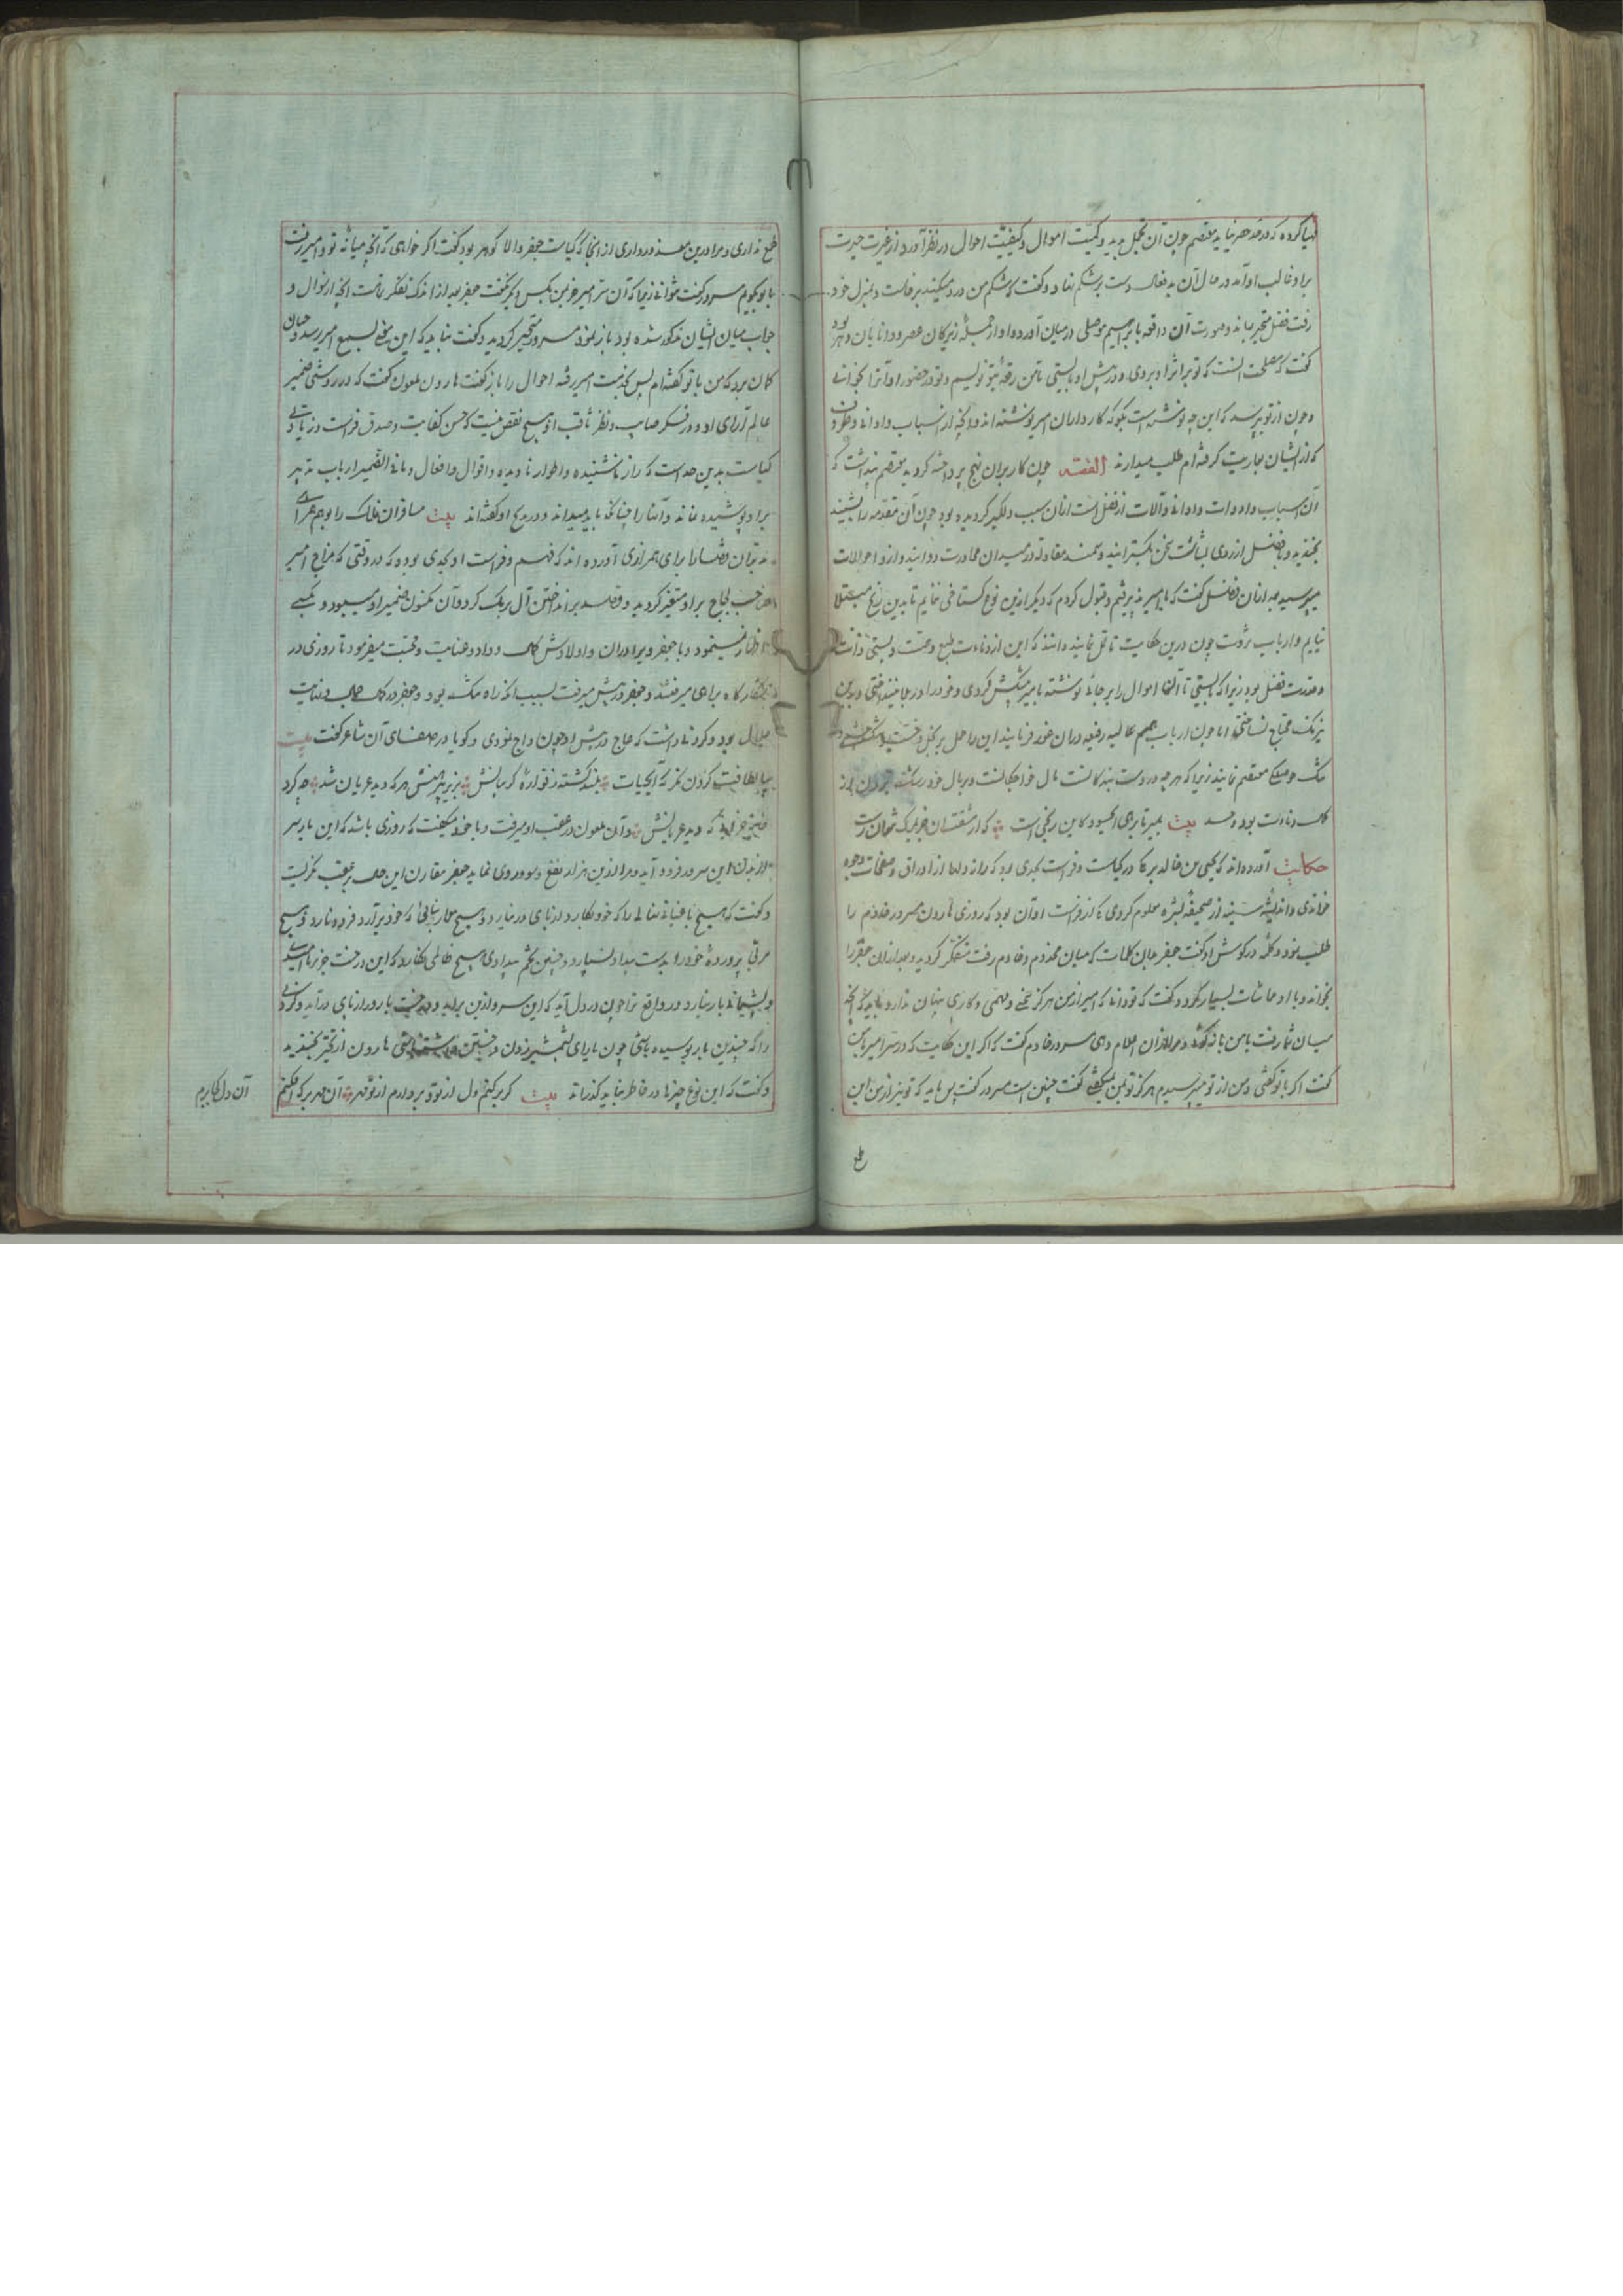 مهیا کرده که در حد حصر نیاید معتصم چون آن تجمل بدید و کمیت اموال و کیفیت احوال در نظر آورد از غیرت حیرت
برو غالب او آمد در حال آن بدفعال دست بر شکم نهاد و گفت که شکم من درد میکند برخاست و بمنزل خود
رفت فضل متحیر بماند و صورت آن واقعه با ابراهیم موصلی در میان آورد و او از جمله زیرکان عصر و دانایان دهر بود
گفت که مصلحت آنست که تو بر اثر او بروی و در پیش او بایستی تا من رقعه بتو نویسم و تو در حضور او آنرا بخوانی
و چون از تو پرسد که این چه نوشته است بگو که کارداران امیر نوشته اند و آنچه از اسباب و اوانی و ظروف
که از ایشان بعاریت گرفته ام طلب میدارند القصه چون کار بران نهج پرداخته گردید معتصم پنداشت که
آن اسباب و ادوات و اوانی و آلات از فضل است ازان سبب دلگیر گردیده بود چون آن مقدمه را بشنید
بخندید و با فضل از روی بشاشت سخن بگسترانید و سمند مقاوله در میدان محاورت دوانید و ازو احوالات
میپرسید بعد ازان فضل گفت که با امیر پذیرفتم و قبول کردم که دیگر ازین نوع گستاخی ننمایم تا بدین رنج مبتلا
نیایم و ارباب ثروت چون درین حکایت تامل نمایند دانند که این از دناءت طبع و همت و پستی ذات
و قدرت فضل بود زیرا که بایستی تا آنها اموال را بر جائی نوشته با امیر پیشکش کردی و خود را در بلا نینداختی و بدین
نیرنگ محتاج نساختی اما چون ارباب همم عالیه رفیعه دران خوض فرمایند این را حمل بر بخل و خست
تنگ حوصلگی معتصم نمایند زیرا که هرچه در دست بندگانست مال خواجگانست و بر مال خود رشک بردن از
کمال دناءت بود و حسد بیت بمیر تا برهی ای حسود کاین رنجی است که از مشقت آن جز بمرگ نتوان رست
حکایت آورده اند که یحیی بن خالد برمکی در کیاست و فراست بحدی بود که راز دلها از اوراق و صفحات وجوه
خواندی و اندیشه سینه از صحیفه بشره معلوم کردی و از فراست او آن بود که روزی هارون مسرور خادم را
طلب نمود و کلمه در گوش او گفت جعفر بدان کلمات که میان مخدوم و خادم رفت متفکر گردید و بعد ازان جعفر او را
بخواند و با او مماشات بسیار نمود و گفت که تو دانی که امیر از من هرگز سخنی و مهمی و کاری پنهان ندارد و باید که آنچه
میان شما رفت با من باز گوئی و مرا ازان اعلام دهی مسرور خادم گفت که اگر این حکایت که در سر امیر با من
گفت اگر با تو گفتی و من از تو میپرسیدم هرگز تو بمن میگفتی گفت چنین است مسرور گفت پس باید که تو نیز از من این
طمع
طمع نداری و مرا درین معذور داری از آنجا که کیاست جعفر والا گوهر بود گفت اگر خواهی که آنچه میانه تو و امیر رفت
با تو بگویم مسرور گفت نتوانی زیرا که آن سر امیر جز بمن بکس دیگر نگفت جعفر بعد از اندک تفکر راست آنچه از سؤال و
جواب میان ایشان مذکور شده بود باز نمود مسرور متحیر گردید و گفت نباید که این سخن بسمع امیر رسد و چنان
گمان برد که من با تو گفته ام پس بخدمت امیر رفته احوال را باز گفت هارون ملعون گفت که در روشنی ضمیر
عالم آرای او و در فکر صایب و نظر ثاقب او هیچ نقص نیست که حسن کفایت و صدق فراست و زیادتی
کیاست بدین حد است که راز ناشنیده و اطوار نادیده و اقوال و افعال و مافی الضمیر ارباب تدبیر
برو پوشیده نماند و آنها را چنانکه باید میداند و در مدح او گفته اند بیت مسافران فلک را بوهم همراهی
مدبران قضا را برای همرازی آورده اند که فهم و فراست او بحدی بوده که در وقتی که مزاج امیر
صاحب لجاج برو متغیر گردید و قصد برانداختن آل برمک کرد و آن مکنون ضمیر او میبود و بکسی
اظهار نمینمود و با جعفر و برادران و اولادش کمال وداد و عنایت و محبت میفرمود تا روزی در
شکارگاه براهی میرفتند و جعفر در پیش میرفت بسبب آنکه راه تنگ بود و جعفر در کمال جمال و نهایت
جلال بود و گردنی داشت که عاج در پیش او چون داج نمودی و گویا در صفای آن شاعر گفت بیت
بیا لطافت گردن نگر که آبحیات بلند گشته ز فواره گریبانش بزیر پیرهنش هر که دید عریان شد چه کرد
فتنه خدا که دید عریانش و آن ملعون در عقب او میرفت و با خود میگفت که روزی باشد که این بار سر
از بدن این سرور فرود آید و مرا ازین هزار نفع و سود روی نماید جعفر مقارن این حال بر عقب نگریست
و گفت که هیچ باغبانی نهالی را که خود بکارد از پای در نیارد و هیچ معمار بنائی که خود برآرد فرو نیارد و هیچ
مربی پرورده خود را بدست بیداد نسپارد و چنین تخم بیدادی هیچ ظالمی نکارد که این درخت جز ناامیدی
و پشیمانی بار نیارد و در واقع ترا چون در دل آید که این سر و ازین بر آید و درخت بارور از پای درآید و گردنی
را که چندین بار بوسیده باشی چون یارای شمشیر زدن و خستن داشته باشی هارون از تحیر بخندید
و گفت که این نوع چیزها در خاطر نباید گذراند بیت گر برکنم دل از تو و بردارم از تو مهر آن مهر بر که افکنم
آن دل کجا برم